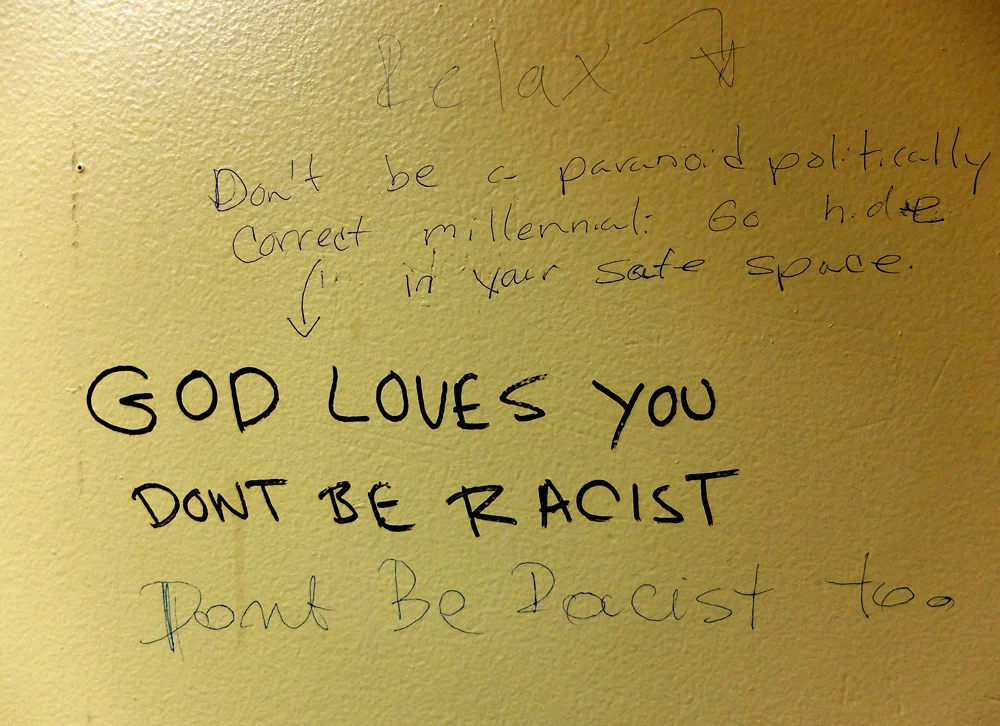 Relax
Don't be a paranoid politically
correct millennial: Go hide
in your safe space.
GOD LOVES YOU
DONT BE RACIST
Dont Be Racist too